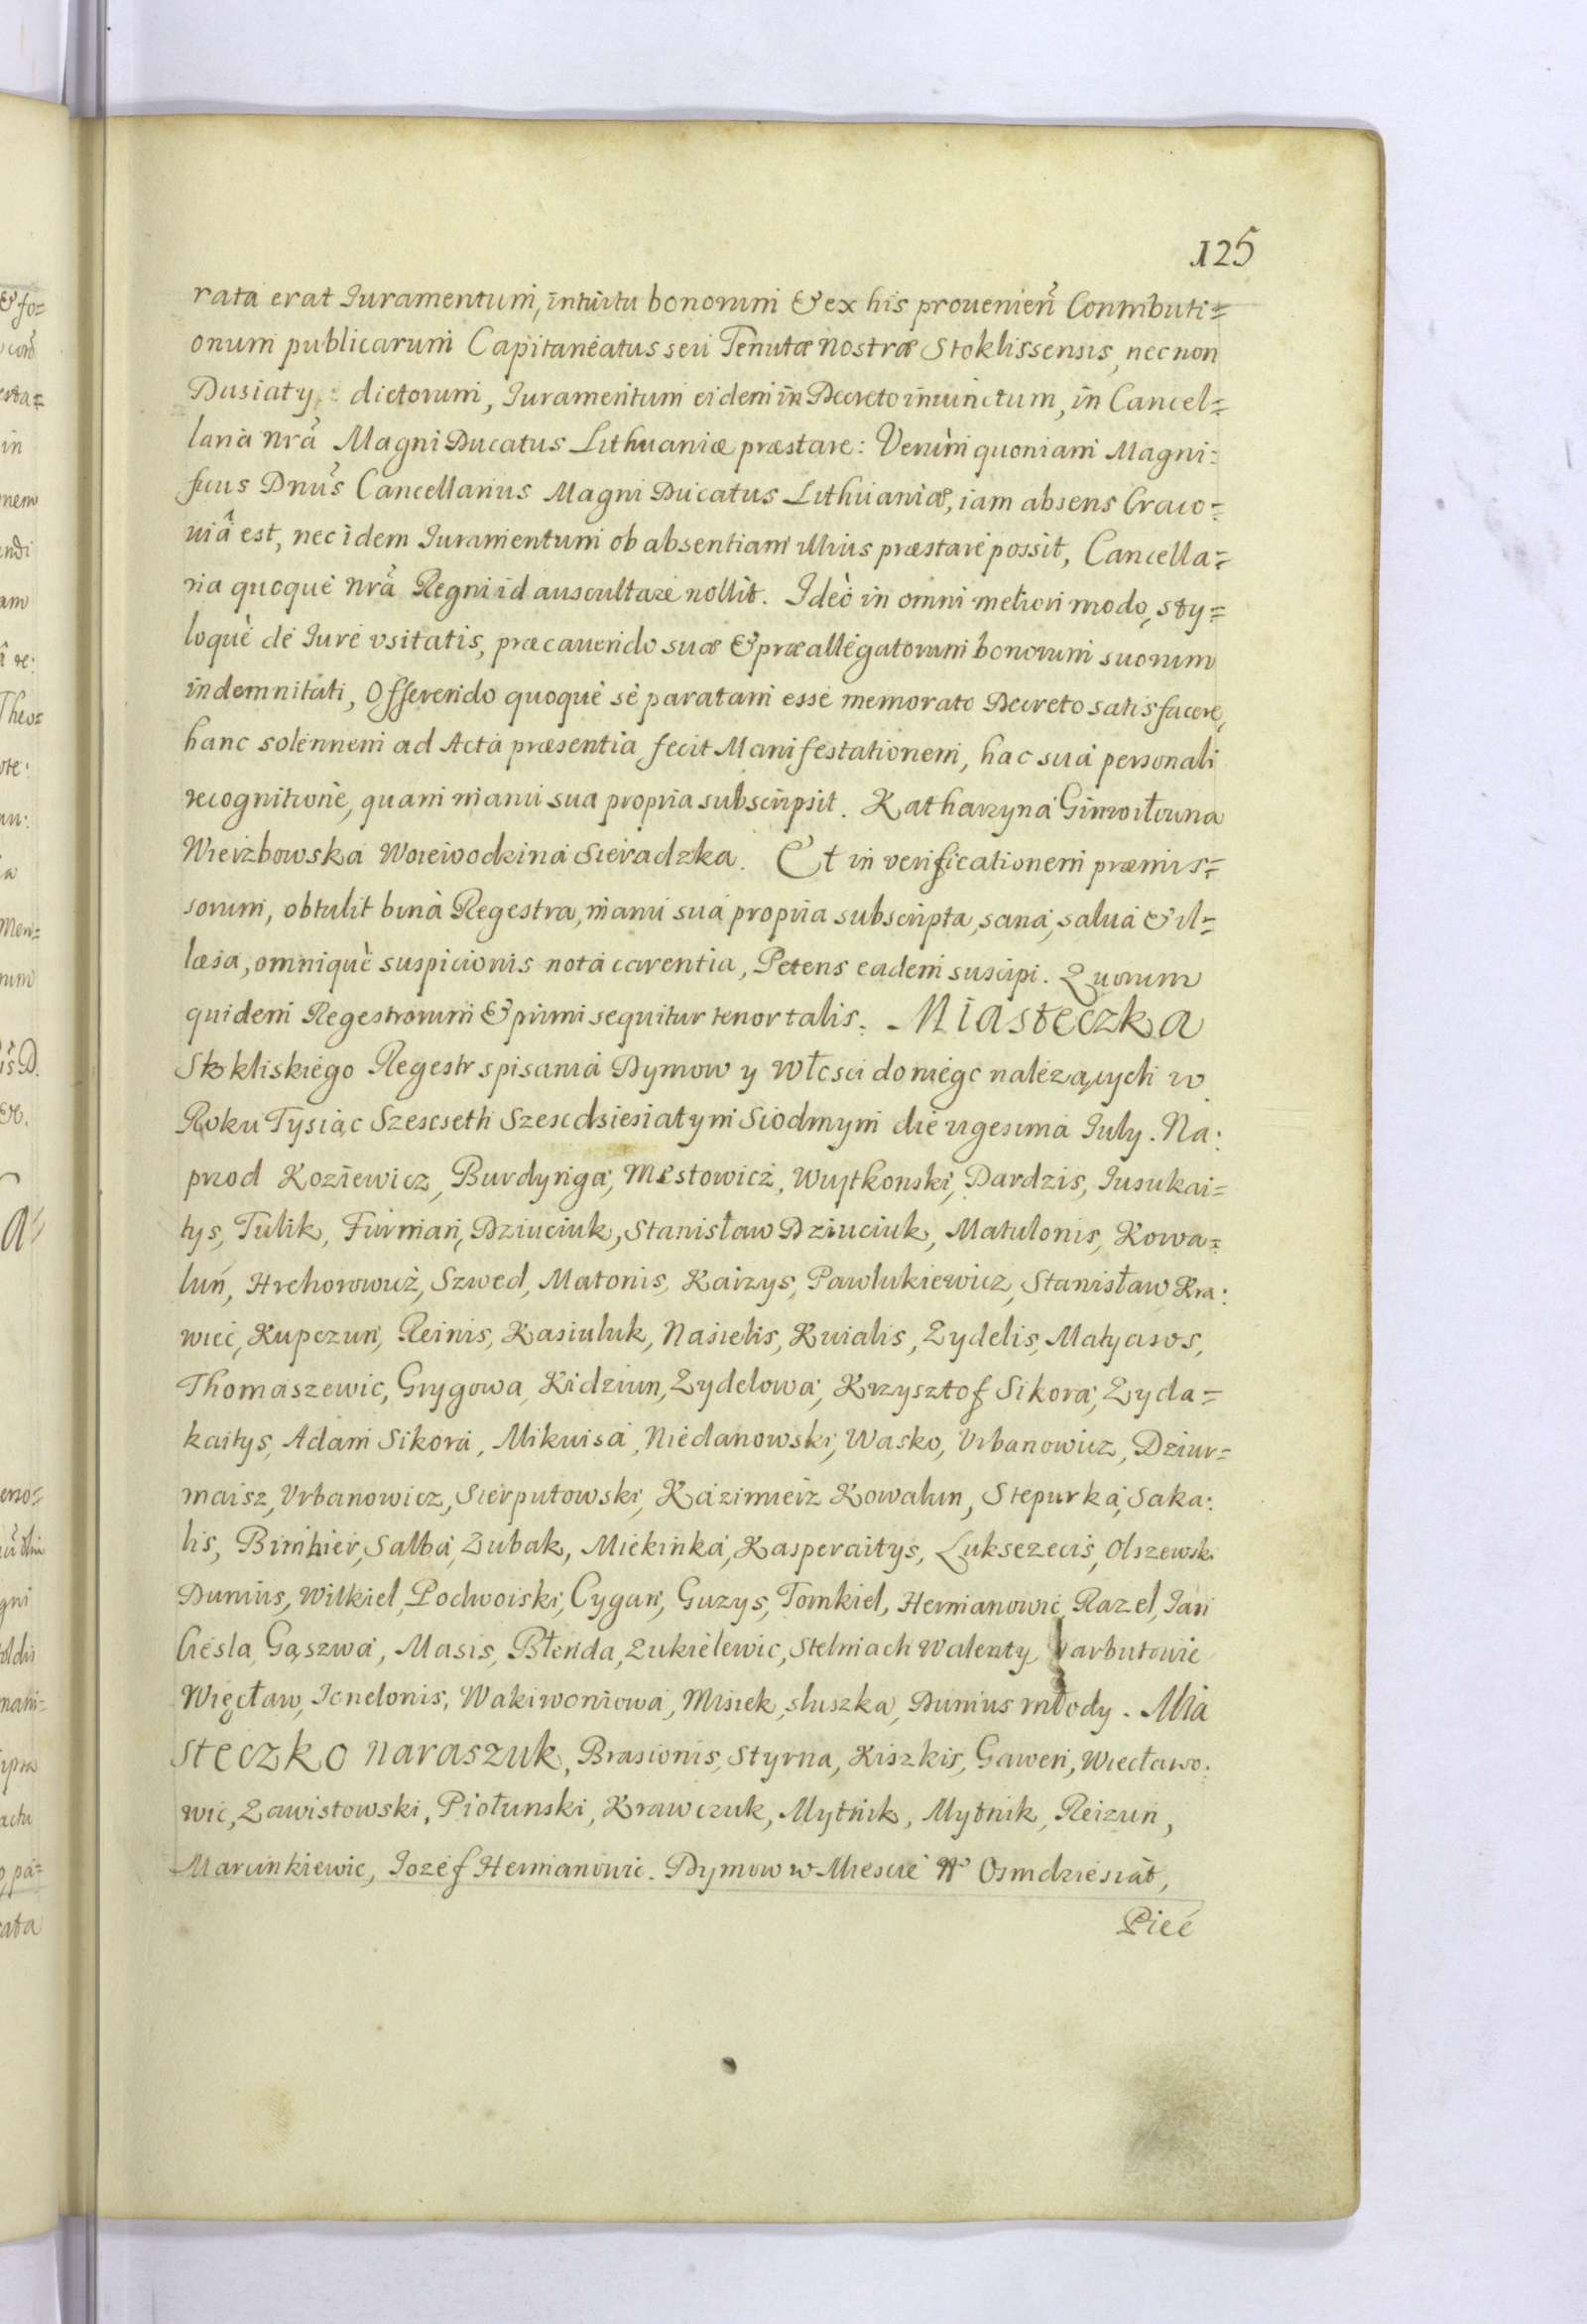 125
rata erat Iuramentum, intuitu bonorum & ex his prouenien̄ Contributi=
onum publicarum Capitaneatus seu Tenutæ nostræ Stoklissensis, nec non
Dusiaty dictorum, Iuramentum eidem in Decreto iniunctum, in Cancel=
laria nrã Magni Ducatus Lithuaniæ præstare: Verùm quoniam Magni:
ficus Dnus Cancellarius Magni Ducatus Lithuaniæ, iam absens Craco=
uiâ est, nec idem Iuramentum ob absentiam illius præstare possit, Cancella=
ria quoque nrã Regni id auscultare nollit. Ideò in omni meliori modo, sty=
loquè de Iure vsitatis, præcauendo suæ & præallegatorum bonorum suorum
indemnitati, Offerendo quoque se paratam esse memorato Decreto satisfacere,
hanc solennem ad Acta præsentia fecit Manifestationem, hac sua personali
recognitione, quam manu sua propria subscripsit. Katharzyna Gimoiłowna
Wierzbowska Woiewodzina Sieradzka. Et in verificationem præmis=
sorum, obtulit bina Regestra, manu sua propria subscripta, sana, salua & il=
læsa, omniquè suspicionis nota carentia, Petens eadem suscipi. Quorum
quidem Regestrorum & primi sequitur tenor talis. Miasteczka
Stokliskiego Regestr spisania Dymow y Włosci do niego należących w
Roku Tysiąc Szescseth Szescdsiesiatym Siodmym die vigesima Iuly. Na:
przod Koziewicz, Burdynga, Mestowicz, Wuytkonski, Dardzis, Iusukai=
tys, Tulik, Furman, Dziuciuk, Stanisław Dziuciuk, Matulonis, Kowa=
lun, Hrehorowicz, Szwed, Matonis, Kaizys, Pawlukiewicz, Stanisław Kra:
wiec, Kupczun, Reinis, Kasiuluk, Nasielis, Kuialis, Zydelis, Matyasos,
Thomaszewic, Grygowa, Kidziun, Zydelowa, Krzysztof Sikora, Zyda=
kaitys, Adam Sikora, Mikuisa, Niedanowski, Wasko, Vrbanowicz, Dziur=
maisz, Vrbanowicz, Sierputowski, Kazimierz Kowalun, Stepurka, Saka:
lis, Bimbier, Salba, Zubak, Miekinka, Kasperaitys, Luksezecis, Olszewski
Dunius, Wilkiel, Podwoiski, Cygan, Guzys, Tomkiel, Hermanowic, Razel, Ian
Ciesla, Gąszwa, Masis, Błenda, Zukielewic, Stelmach Walenty, Narbutowic
Więcław, Ionelonis, Wakiwoniowa, Misiek, sluszka, Dunius młody. Mia
steczko Naraszuk, Brasionis, Styrna, Kiszkis, Gawen, Wiecławo:
wic, Zawistowski, Piołunski, Krawczuk, Mytnik, Mytnik, Reizun,
Marcinkiewic, Iozef Hermanowic. Dymow w Miescie Osmdziesiąt,
Pieć